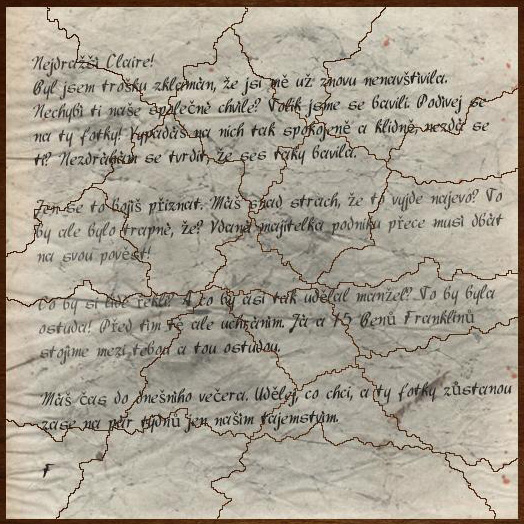 Nejdražší Claire!
Byl jsem trošku zklamán, že jsi mě už znovu nenavštívila.
Nechybí ti naše společné chvíle? Tolik jsme se bavili. Podívej se
na ty fotky! Vypadáš na nich tak spokojeně a klidně, nezdá se
ti? Nezdráhám se tvrdit, že ses taky bavila.
Jen se to bojíš přiznat. Máš snad strach, že to vyjde najevo? To
by ale bylo trapné, že? Vdaná majitelka podniku přece musí dbát
na svou pověst!
Co by si lidé řekli? A co by asi tak udělal manžel? To by byla
ostuda! Před tím tě ale uchráním. Já a 15 Benů Franklinů
stojíme mezi tebou a tou ostudou.
Máš čas do dnešního večera. Udělej, co chci, a ty fotky zůstanou
zase na pár týdnů jen naším tajemstvím.
F